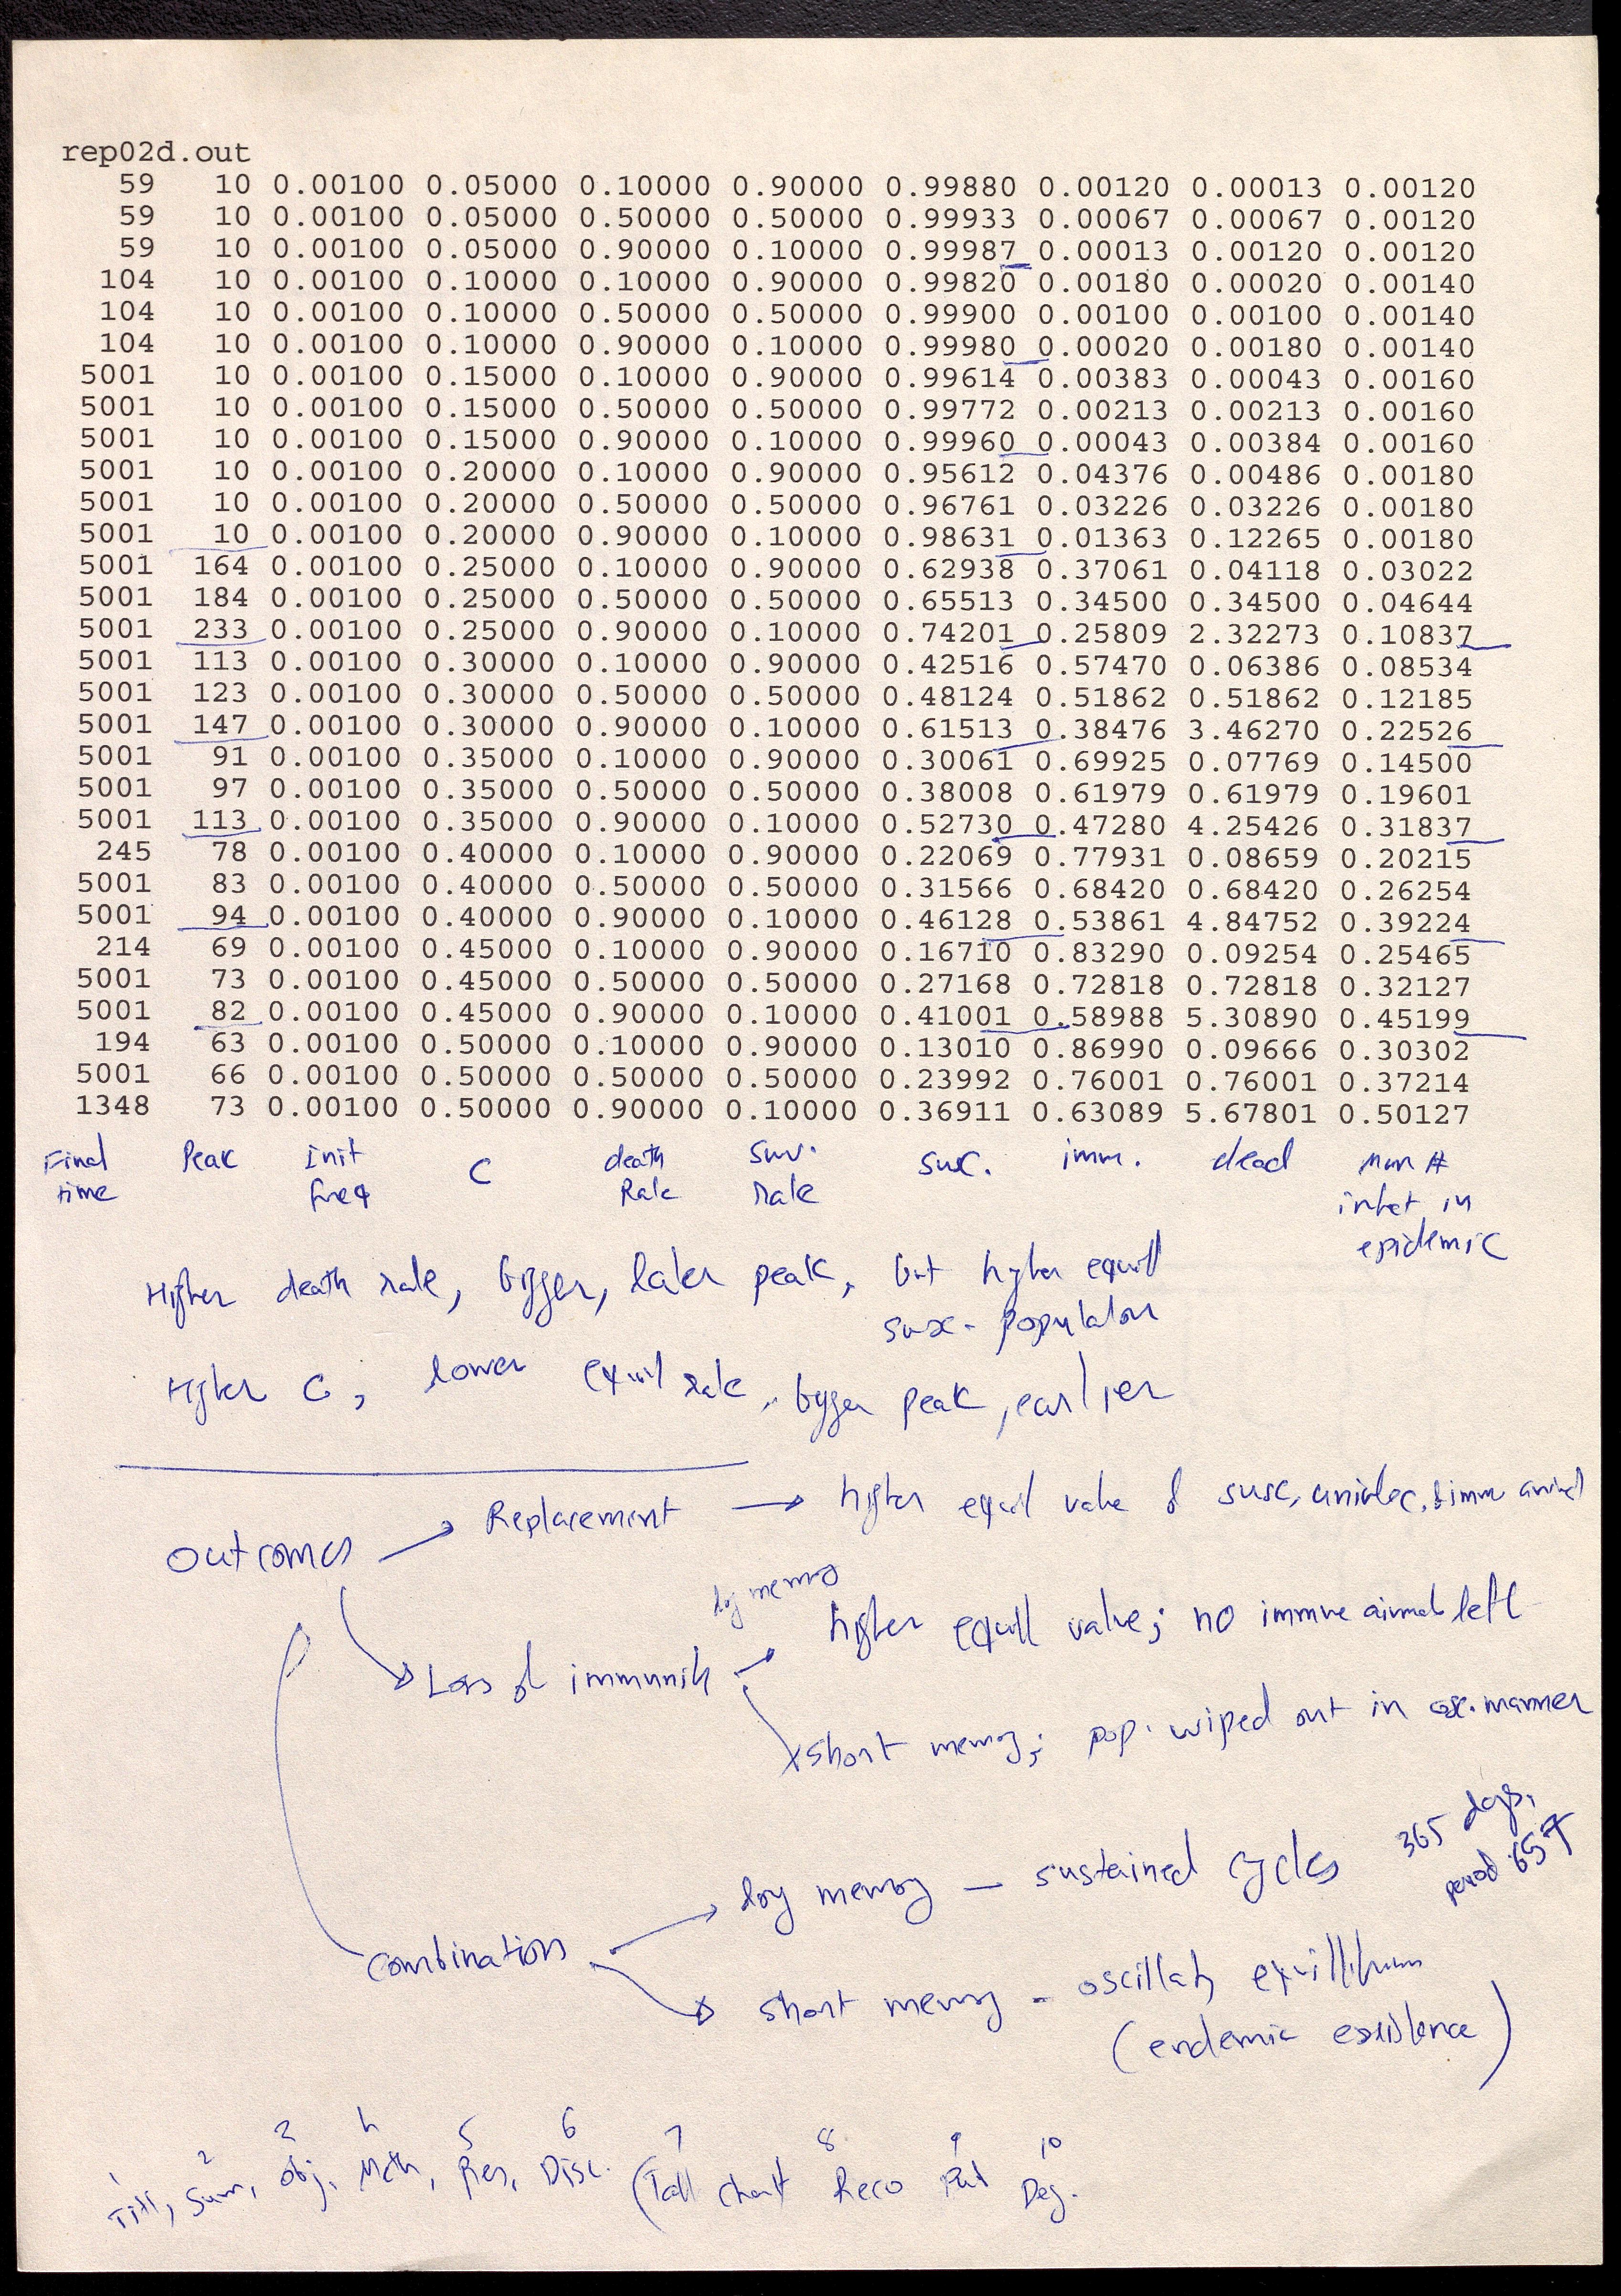 rep02d.out
59 10 0.00100 0.05000 0.10000 0.90000 0.99880 0.00120 0.00013 0.00120
59 10 0.00100 0.05000 0.50000 0.50000 0.99933 0.00067 0.00067 0.00120
59 10 0.00100 0.05000 0.90000 0.10000 0.99987 0.00013 0.00120 0.00120
104 10 0.00100 0.10000 0.10000 0.90000 0.99820 0.00180 0.00020 0.00140
104 10 0.00100 0.10000 0.50000 0.50000 0.99900 0.00100 0.00100 0.00140
104 10 0.00100 0.10000 0.90000 0.10000 0.99980 0.00020 0.00180 0.00140
5001 10 0.00100 0.15000 0.10000 0.90000 0.99614 0.00383 0.00043 0.00160
5001 10 0.00100 0.15000 0.50000 0.50000 0.99772 0.00213 0.00213 0.00160
5001 10 0.00100 0.15000 0.90000 0.10000 0.99960 0.00043 0.00384 0.00160
5001 10 0.00100 0.20000 0.10000 0.90000 0.95612 0.04376 0.00486 0.00180
5001 10 0.00100 0.20000 0.50000 0.50000 0.96761 0.03226 0.03226 0.00180
5001 10 0.00100 0.20000 0.90000 0.10000 0.98631 0.01363 0.12265 0.00180
5001 164 0.00100 0.25000 0.10000 0.90000 0.62938 0.37061 0.04118 0.03022
5001 184 0.00100 0.25000 0.50000 0.50000 0.65513 0.34500 0.34500 0.04644
5001 233 0.00100 0.25000 0.90000 0.10000 0.74201 0.25809 2.32273 0.10837
5001 113 0.00100 0.30000 0.10000 0.90000 0.42516 0.57470 0.06386 0.08534
5001 123 0.00100 0.30000 0.50000 0.50000 0.48124 0.51862 0.51862 0.12185
5001 147 0.00100 0.30000 0.90000 0.10000 0.61513 0.38476 3.46270 0.22526
5001 91 0.00100 0.35000 0.10000 0.90000 0.30061 0.69925 0.07769 0.14500
5001 97 0.00100 0.35000 0.50000 0.50000 0.38008 0.61979 0.61979 0.19601
5001 113 0.00100 0.35000 0.90000 0.10000 0.52730 0.47280 4.25426 0.31837
245 78 0.00100 0.40000 0.10000 0.90000 0.22069 0.77931 0.08659 0.20215
5001 83 0.00100 0.40000 0.50000 0.50000 0.31566 0.68420 0.68420 0.26254
5001 94 0.00100 0.40000 0.90000 0.10000 0.46128 0.53861 4.84752 0.39224
214 69 0.00100 0.45000 0.10000 0.90000 0.16710 0.83290 0.09254 0.25465
5001 73 0.00100 0.45000 0.50000 0.50000 0.27168 0.72818 0.72818 0.32127
5001 82 0.00100 0.45000 0.90000 0.10000 0.41001 0.58988 5.30890 0.45199
194 63 0.00100 0.50000 0.10000 0.90000 0.13010 0.86990 0.09666 0.30302
5001 66 0.00100 0.50000 0.50000 0.50000 0.23992 0.76001 0.76001 0.37214
1348 73 0.00100 0.50000 0.90000 0.10000 0.36911 0.63089 5.67801 0.50127
Final Peak Init C death Surv. susc. imm. dead #
time freq Rate Rate infect in
epidemic
Higher death rate, bigger, later peak, but higher equil
susc. population
Higher C, lower equil rate, bigger peak, earlier
Outcomes → Replacement → higher equil value of susc, uninfec,
long memory
Loss of immunity → higher equil value; no immune animals left
short memory; pop. wiped out in osc. manner
365 days,
period 657
long memory – sustained cycles
combination
short memory – oscillatory equillibrium
(endemic existence)
1 2 3 4 5 6 7 8 9 10
Titl, Sum, Obj, Meth, Res, Disc. (Tall chart Reco